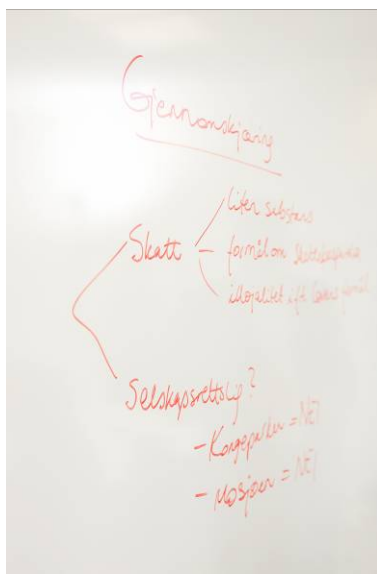 Gjennomskjæring
Skatt
liten substans
formål om skattebesparelse
illojalitet ift. lovens formål
Selskapsrettslig?
- Kongeparken = NEI
- Mosjøen = NEI